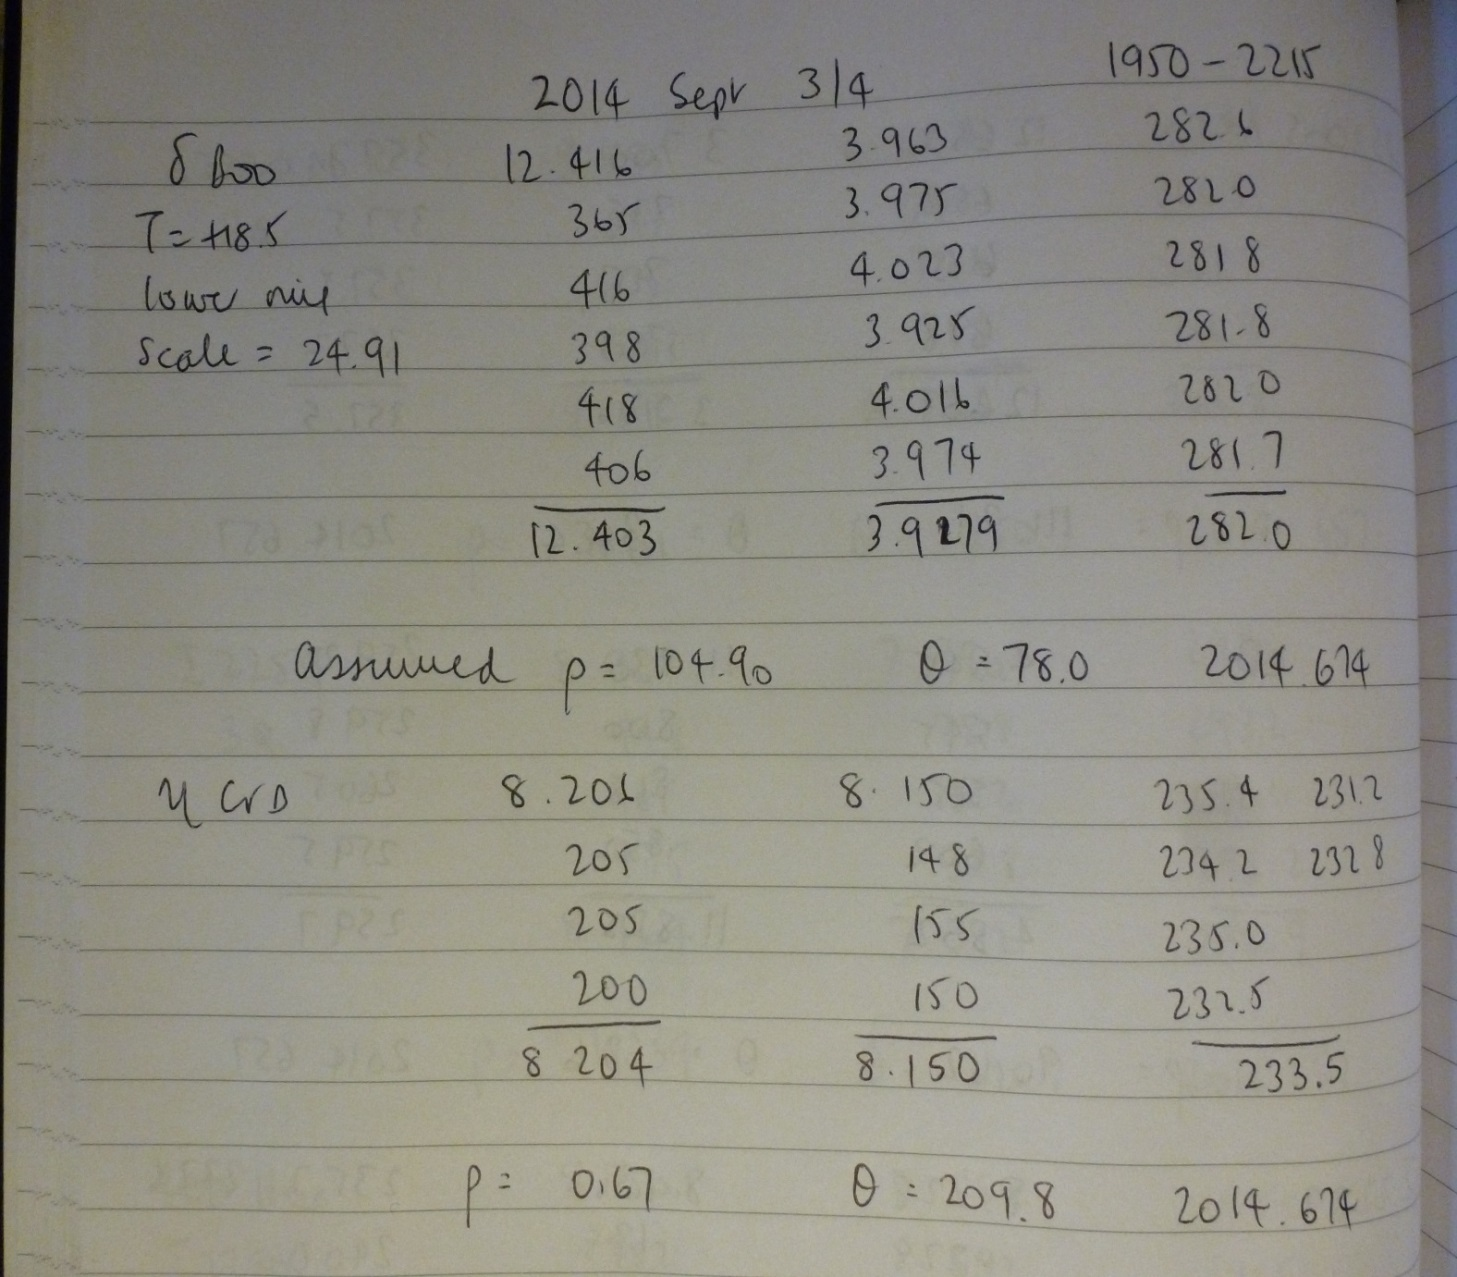 1950 - 2215
2014 Sept 3/4
δ Boo 12.416 3.963 282.6
T = +18.5 365 3.975 282.0
lower 416 4.023 281.8
Scale = 24.91 398 3.925 281.8
418 4.016 282.0
406 3.974 281.7
12.403 3.979 282.0
assumed ρ = 104.90 θ = 78.0 2014.674
η CrB 8.206 8.150 235.4 231.2
205 148 234.2 232.8
205 155 235.0
200 150 232.5
8.204 8.150 233.5
ρ = 0.67 θ = 209.8 2014.674